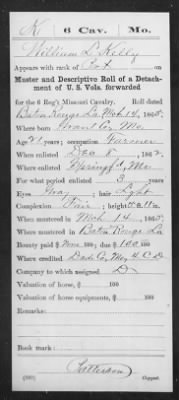 K | 6 Cav. | Mo.
William L Kelly
Appears with rank of Pvt. on
Muster and Descriptive Roll of a Detach-
ment of U. S. Vols. forwarded
for the 6 Reg't Missouri Cavalry. Roll dated
Baton Rouge La Mch 14, 1865.
Where born Mo.
Age 21 years; occupation Farmer
When enlisted Dec 8, 1862.
Where enlisted Springf'd, Mo.
For what period enlisted 3 years.
Eyes Gray; hair Light
Complexion Fair; height ft. in.
When mustered in Mch 14, 1865.
Where mustered in Baton Rouge La
Bounty paid $ None 100; due $ 100 100
Where credited Dade Co, Mo, 4 C D
Company to which assigned D
Valuation of horse, $ 100
Valuation of horse equipments, $ 100
Remarks:
Book mark:
Patterson
Copyist.